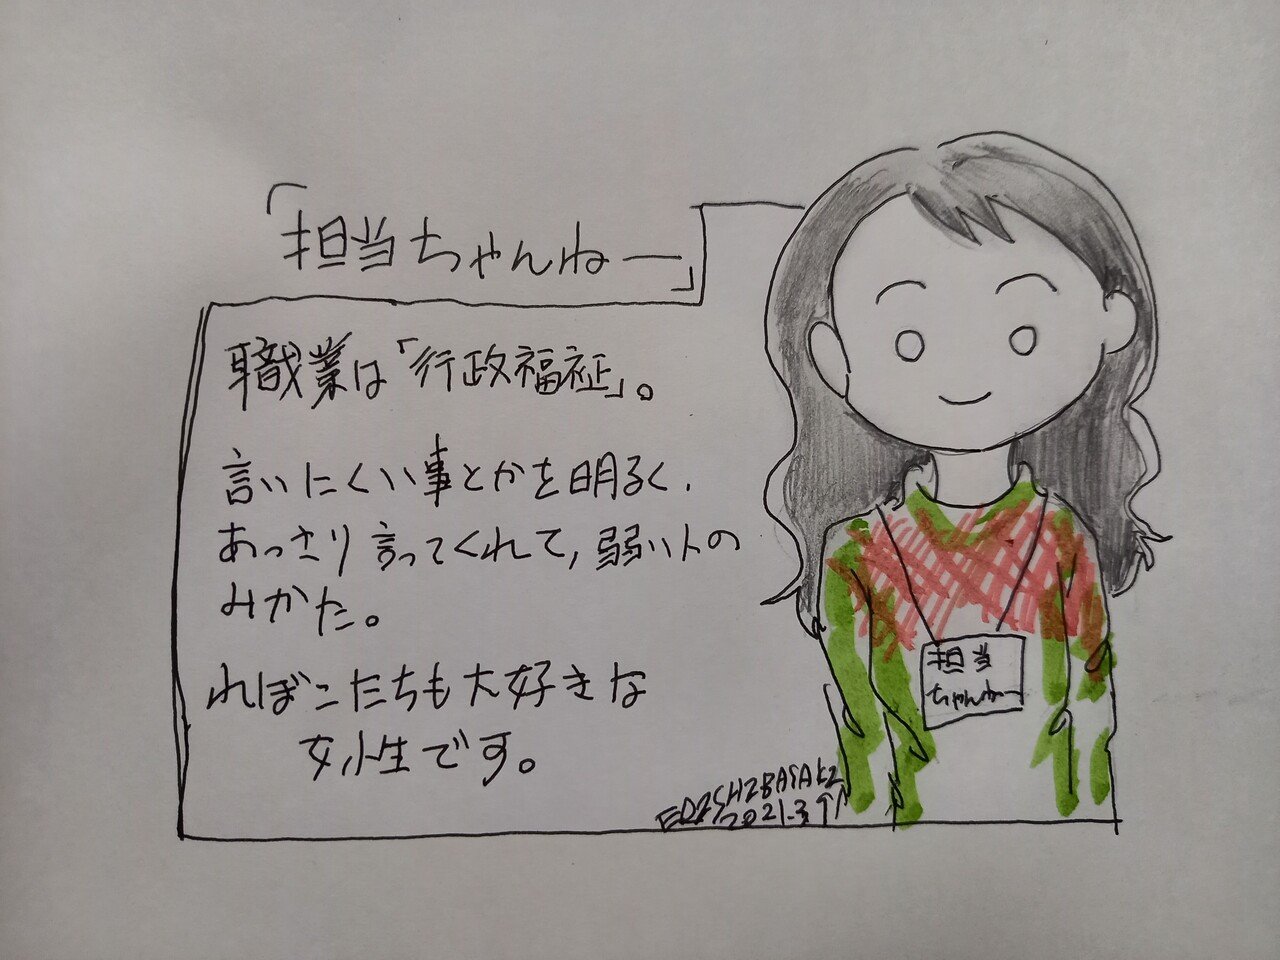 「担当ちゃんねー」
職業は「行政福祉」。
言いにくい事とかを明るく、
あっさり言ってくれて、弱い人の
みかた。
ればこたちも大好きな
女性です。
担当
ちゃんねー
EDISHIBASAKI
2021.3